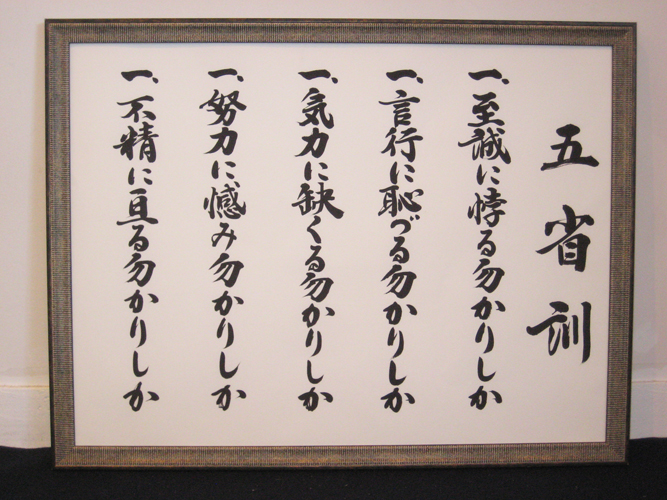 五省訓
一、至誠に悖る勿かりしか
一、言行に恥づる勿かりしか
一、気力に缺くる勿かりしか
一、努力に憾み勿かりしか
一、不精に亘る勿かりしか